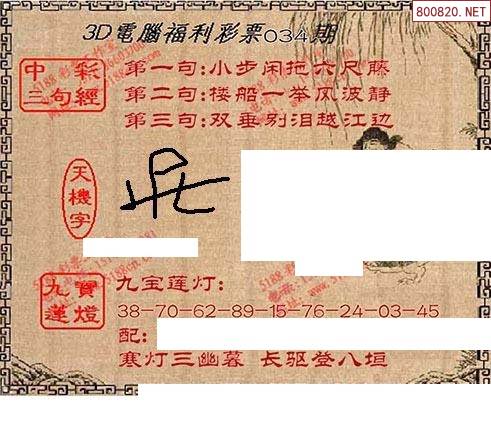 800820.NET
3D電腦福利彩票034期
中彩
三句經
第一句:小步闲拖六尺藤
第二句:楼船一举风波静
第三句:双垂别泪越江边
天機字
九寶
蓮燈
九宝莲灯:
38-70-62-89-15-76-24-03-45
配:
寒灯三幽暮 长驱登八垣